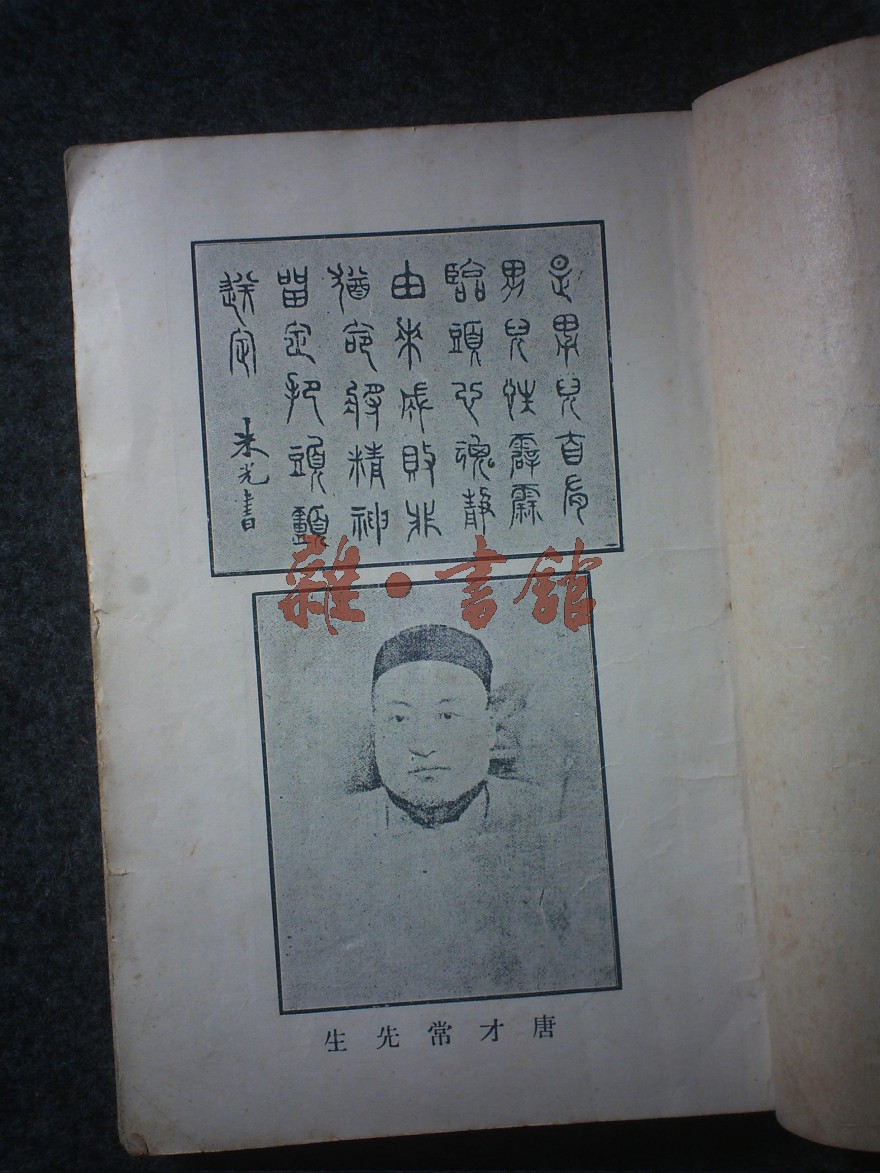 是男兒自有
男兒性霹靂
臨頭心魂靜
由來成敗非
猶命將精神
留定把頭顱
送定 光書
雜·書館
唐才常先生